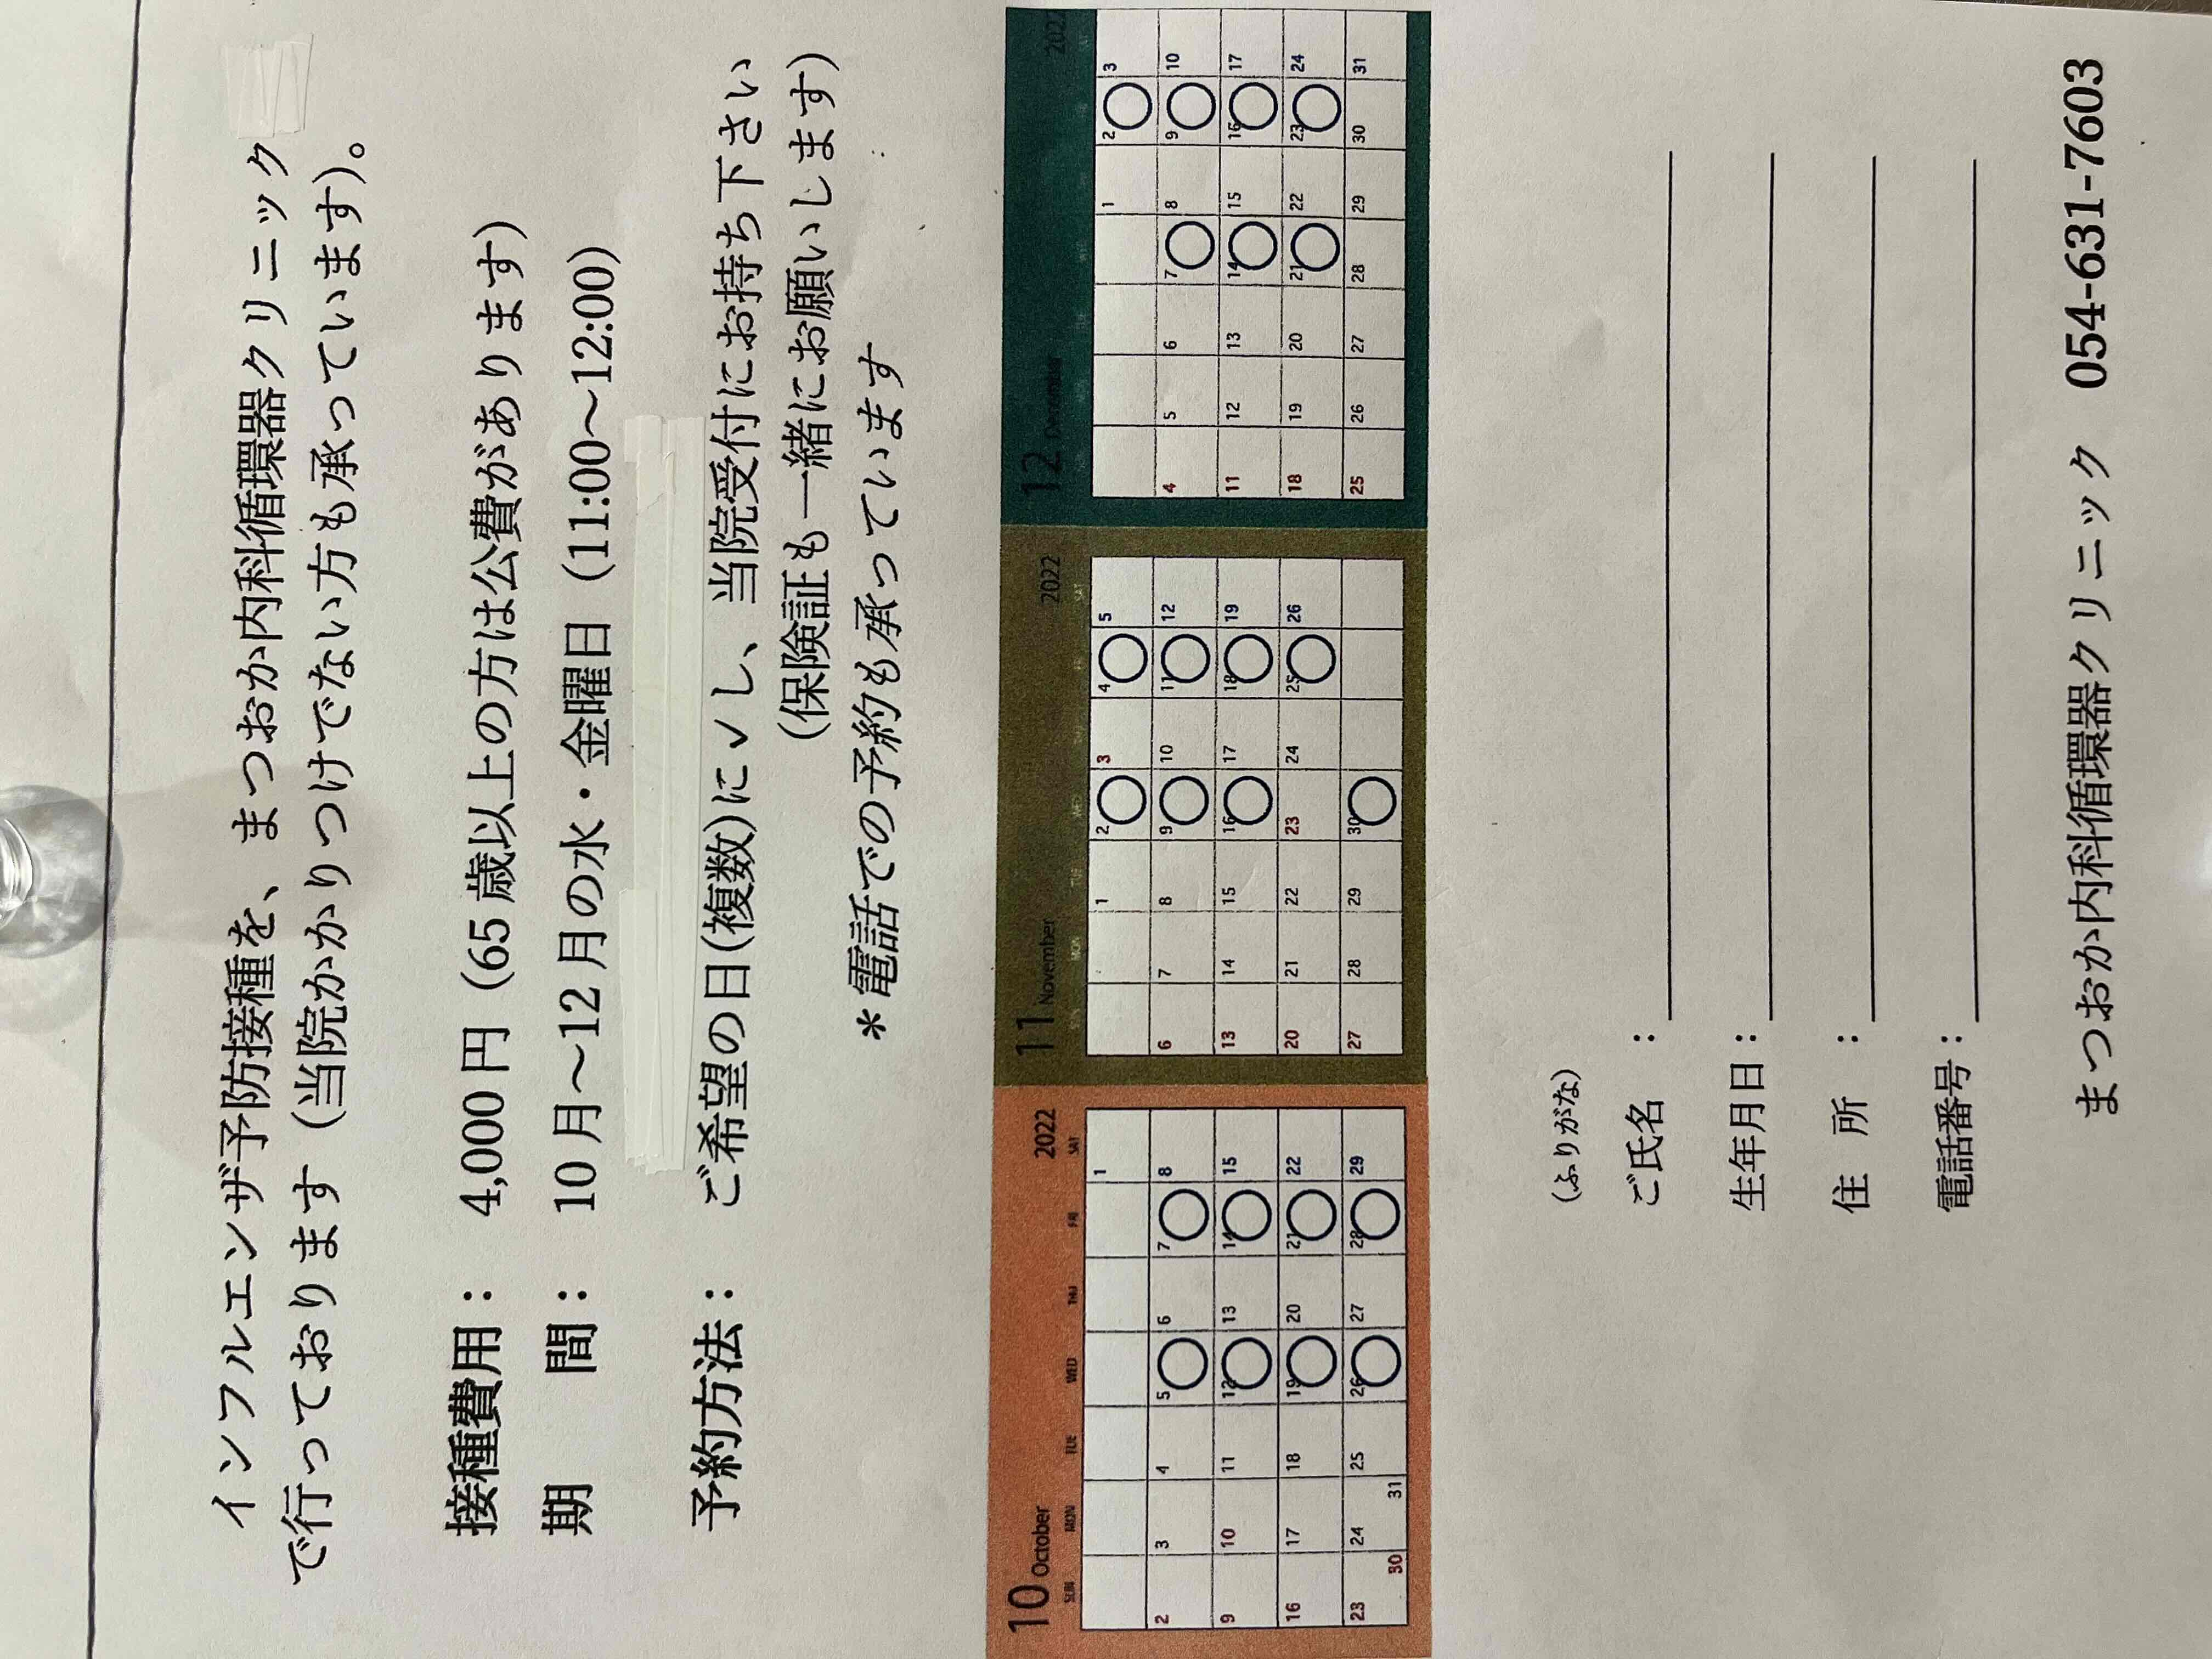 インフルエンザ予防接種を、まつおか内科循環器クリニック
で行っております（当院かかりつけでない方も承っています）。
接種費用： 4,000 円（65 歳以上の方は公費があります）
期 間： 10 月～12 月の水・金曜日（11:00～12:00）
予約方法： ご希望の日(複数)に✓し、当院受付にお持ち下さい
(保険証も一緒にお願いします)
＊電話での予約も承っています
10 October 2022
SUN MON TUE WED THU FRI SAT
1
2 3 4 5 6 7 8
9 10 11 12 13 14 15
16 17 18 19 20 21 22
23 24 25 26 27 28 29
30 31
11 November 2022
SUN MON TUE WED THU FRI SAT
1 2 3 4 5
6 7 8 9 10 11 12
13 14 15 16 17 18 19
20 21 22 23 24 25 26
27 28 29 30
12 December 2022
1 2 3
4 5 6 7 8 9 10
11 12 13 14 15 16 17
18 19 20 21 22 23 24
25 26 27 28 29 30 31
(ふりがな)
ご氏名 ：
生年月日：
住 所 ：
電話番号：
まつおか内科循環器クリニック 054-631-7603